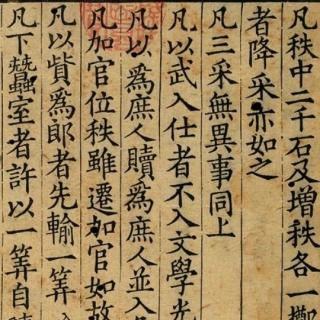 凡秩中二千石及增秩各一擲
者降采亦如之
凡三采無異事同上
凡以武入仕者不入文學光
凡以爲庶人贖爲庶人並入
凡加官位秩雖遷加官如故
凡以貲爲郎者先輸一筭
凡下蠶室者許以一筭自